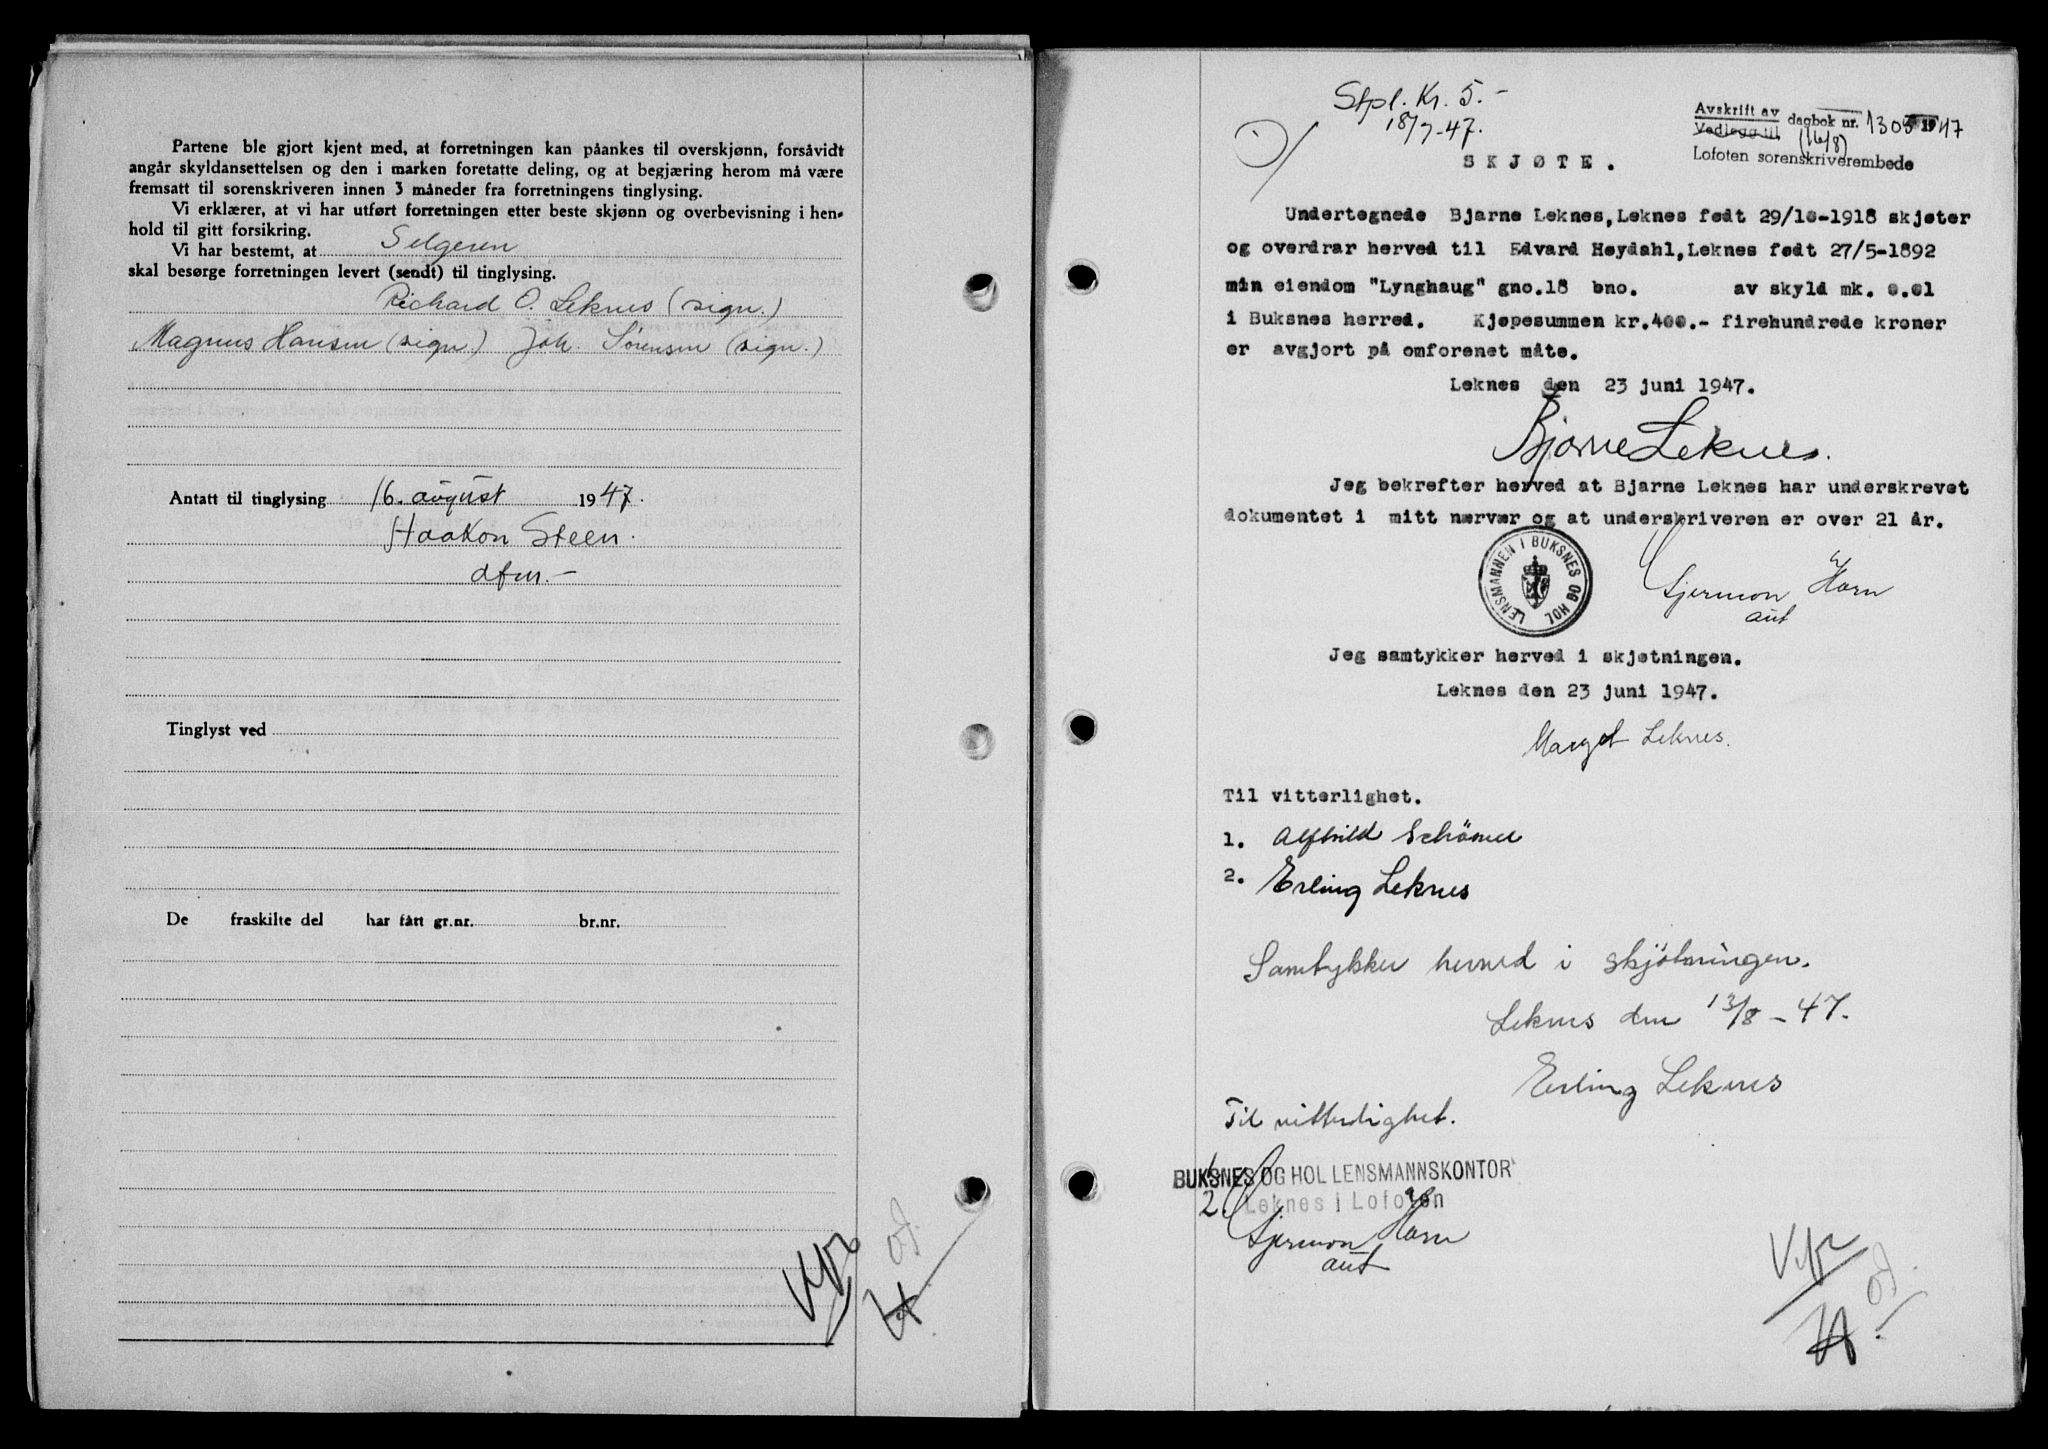 Partene ble gjort kjent med, at forretningen kan påankes til overskjønn, forsåvidt
angår skyldansettelsen og den i marken foretatte deling, og at begjæring herom må være
fremsatt til sorenskriveren innen 3 måneder fra forretningens tinglysing.
Vi erklærer, at vi har utført forretningen etter beste skjønn og overbevisning i hen-
hold til gitt forsikring.
Vi har bestemt, at Selgeren
skal besørge forretningen levert (sendt) til tinglysing.
Richard O. Leknes (sign.)
Magnus Hansen (sign.) Joh. Sørensen (sign.)
Antatt til tinglysing 16. august 1947.
Haakon Steen.
dfm.-
Tinglyst ved
De fraskilte del har fått gr.nr. br.nr.
Stpl. Kr. 5.-
18/7-47.
Avskrift av
Vedlegg til dagbok nr. 1305 1947
(16/8)
Lofoten sorenskriverembede
SKJØTE.
Undertegnede Bjarne Leknes, Leknes født 29/10-1918 skjøter
og overdrar herved til Edvard Høydahl, Leknes født 27/5-1892
min eiendom "Lynghaug" gno.18 bno. av skyld mk. 0.01
i Buksnes herred. Kjøpesummen kr.400.- firehundrede kroner
er avgjort på omforenet måte.
Leknes den 23 juni 1947.
Bjarne Leknes.
Jeg bekrefter herved at Bjarne Leknes har underskrevet
dokumentet i mitt nærvær og at underskriveren er over 21 år.
LENSMANNEN I BUKSNES OG HOL
Horn
aut
Jeg samtykker herved i skjøtningen.
Leknes den 23 juni 1947.
Margot Leknes.
Til vitterlighet.
1. Alfhild
2. Erling Leknes
Samtykker herved i skjötningen.
Leknes den 13/8-47.
Erling Leknes
Til vitterlighet.
BUKSNES OG HOL LENSMANNSKONTOR
2. Leknes i Lofoten
Horn
aut